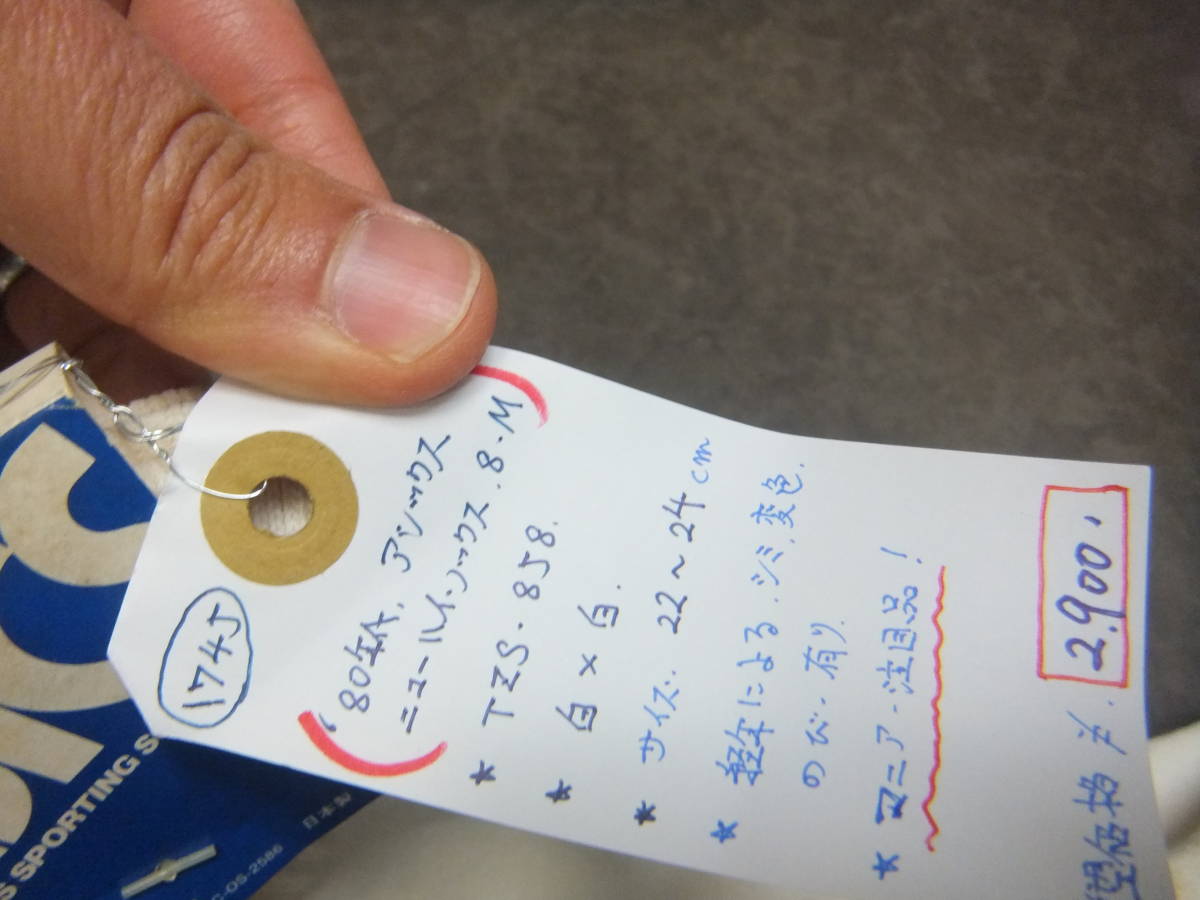 174J
'80年代. アシックス
ニュールイ.ソックス.8.M
* TZS.858.
* 白×白.
* サイズ. 22〜24cm
* 経年による.シミ.変色.
のび.有り.
* マニア.注目品!
望価格 〆. 2.900.
IC
S SPORTING S
日本製
C-OS-2586